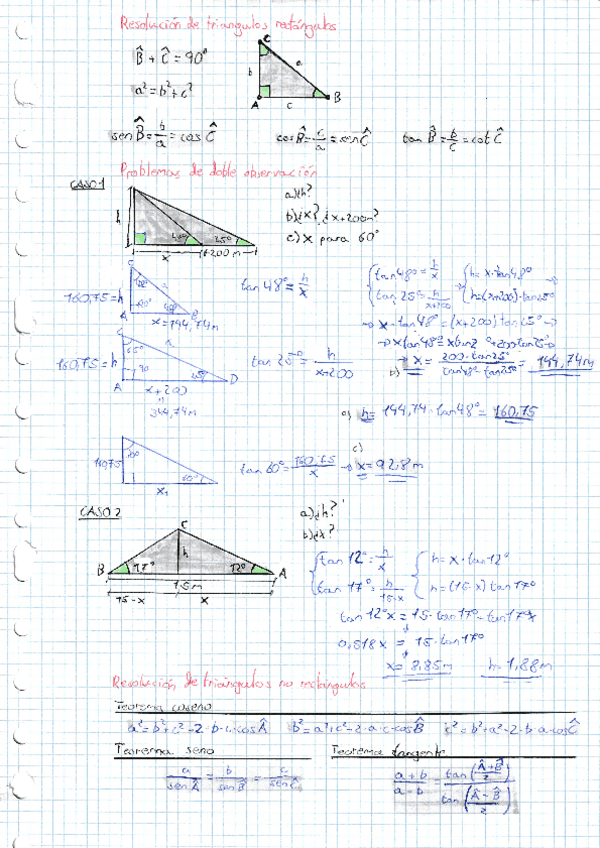 Resolución de triángulos rectángulos
B̂ + Ĉ = 90°
a² = b² + c²
C
b
a
A
c
B
sen B̂ = b/a = cos Ĉ
cos B̂ = c/a = sen Ĉ
tan B̂ = b/c = cot Ĉ
Problemas de doble observación
CASO 1
h
48°
25°
x
+200 m
a) ¿h?
b) ¿x? ¿x+200m?
c) x para 60°
160,75 = h
x = 144,74 m
tan 48° = h/x
{ tan 48° = h/x
{ tan 25° = h/x+200
{ h = x·tan 48°
{ h = (x+200)·tan 25°
→ x·tan 48° = (x+200) tan 25° →
b) → x = 200·tan 25° / tan 48° - tan 25° = 144,74 m
160,75 = h
C
65°
90
25°
A
D
x+200
344,74 m
tan 25° = h/x+200
a) h = 144,74·tan 48° = 160,75
160,75
60°
x₁
tan 60° = 160,75/x →
c)
x = 92,8 m
CASO 2
C
h
B
17°
12°
A
15 m
15-x
x
a) ¿h?
b) ¿x?
{ tan 12° = h/x
{ tan 17° = h/15-x
{ h = x·tan 12°
{ h = (15-x) tan 17°
tan 12° x = 15·tan 17° - tan 17° x
0,518x = 15·tan 17°
x = 8,85 m
h = 1,88 m
Resolución de triángulos no rectángulos
Teorema coseno
a² = b² + c² - 2·b·c·cos Â
b² = a² + c² - 2·a·c·cos B̂
c² = b² + a² - 2·b·a·cos Ĉ
Teorema seno
a/sen Â = b/sen B̂ = c/sen Ĉ
Teorema tangente
a+b/a-b = tan(Â+B̂/2)/tan(Â-B̂/2)